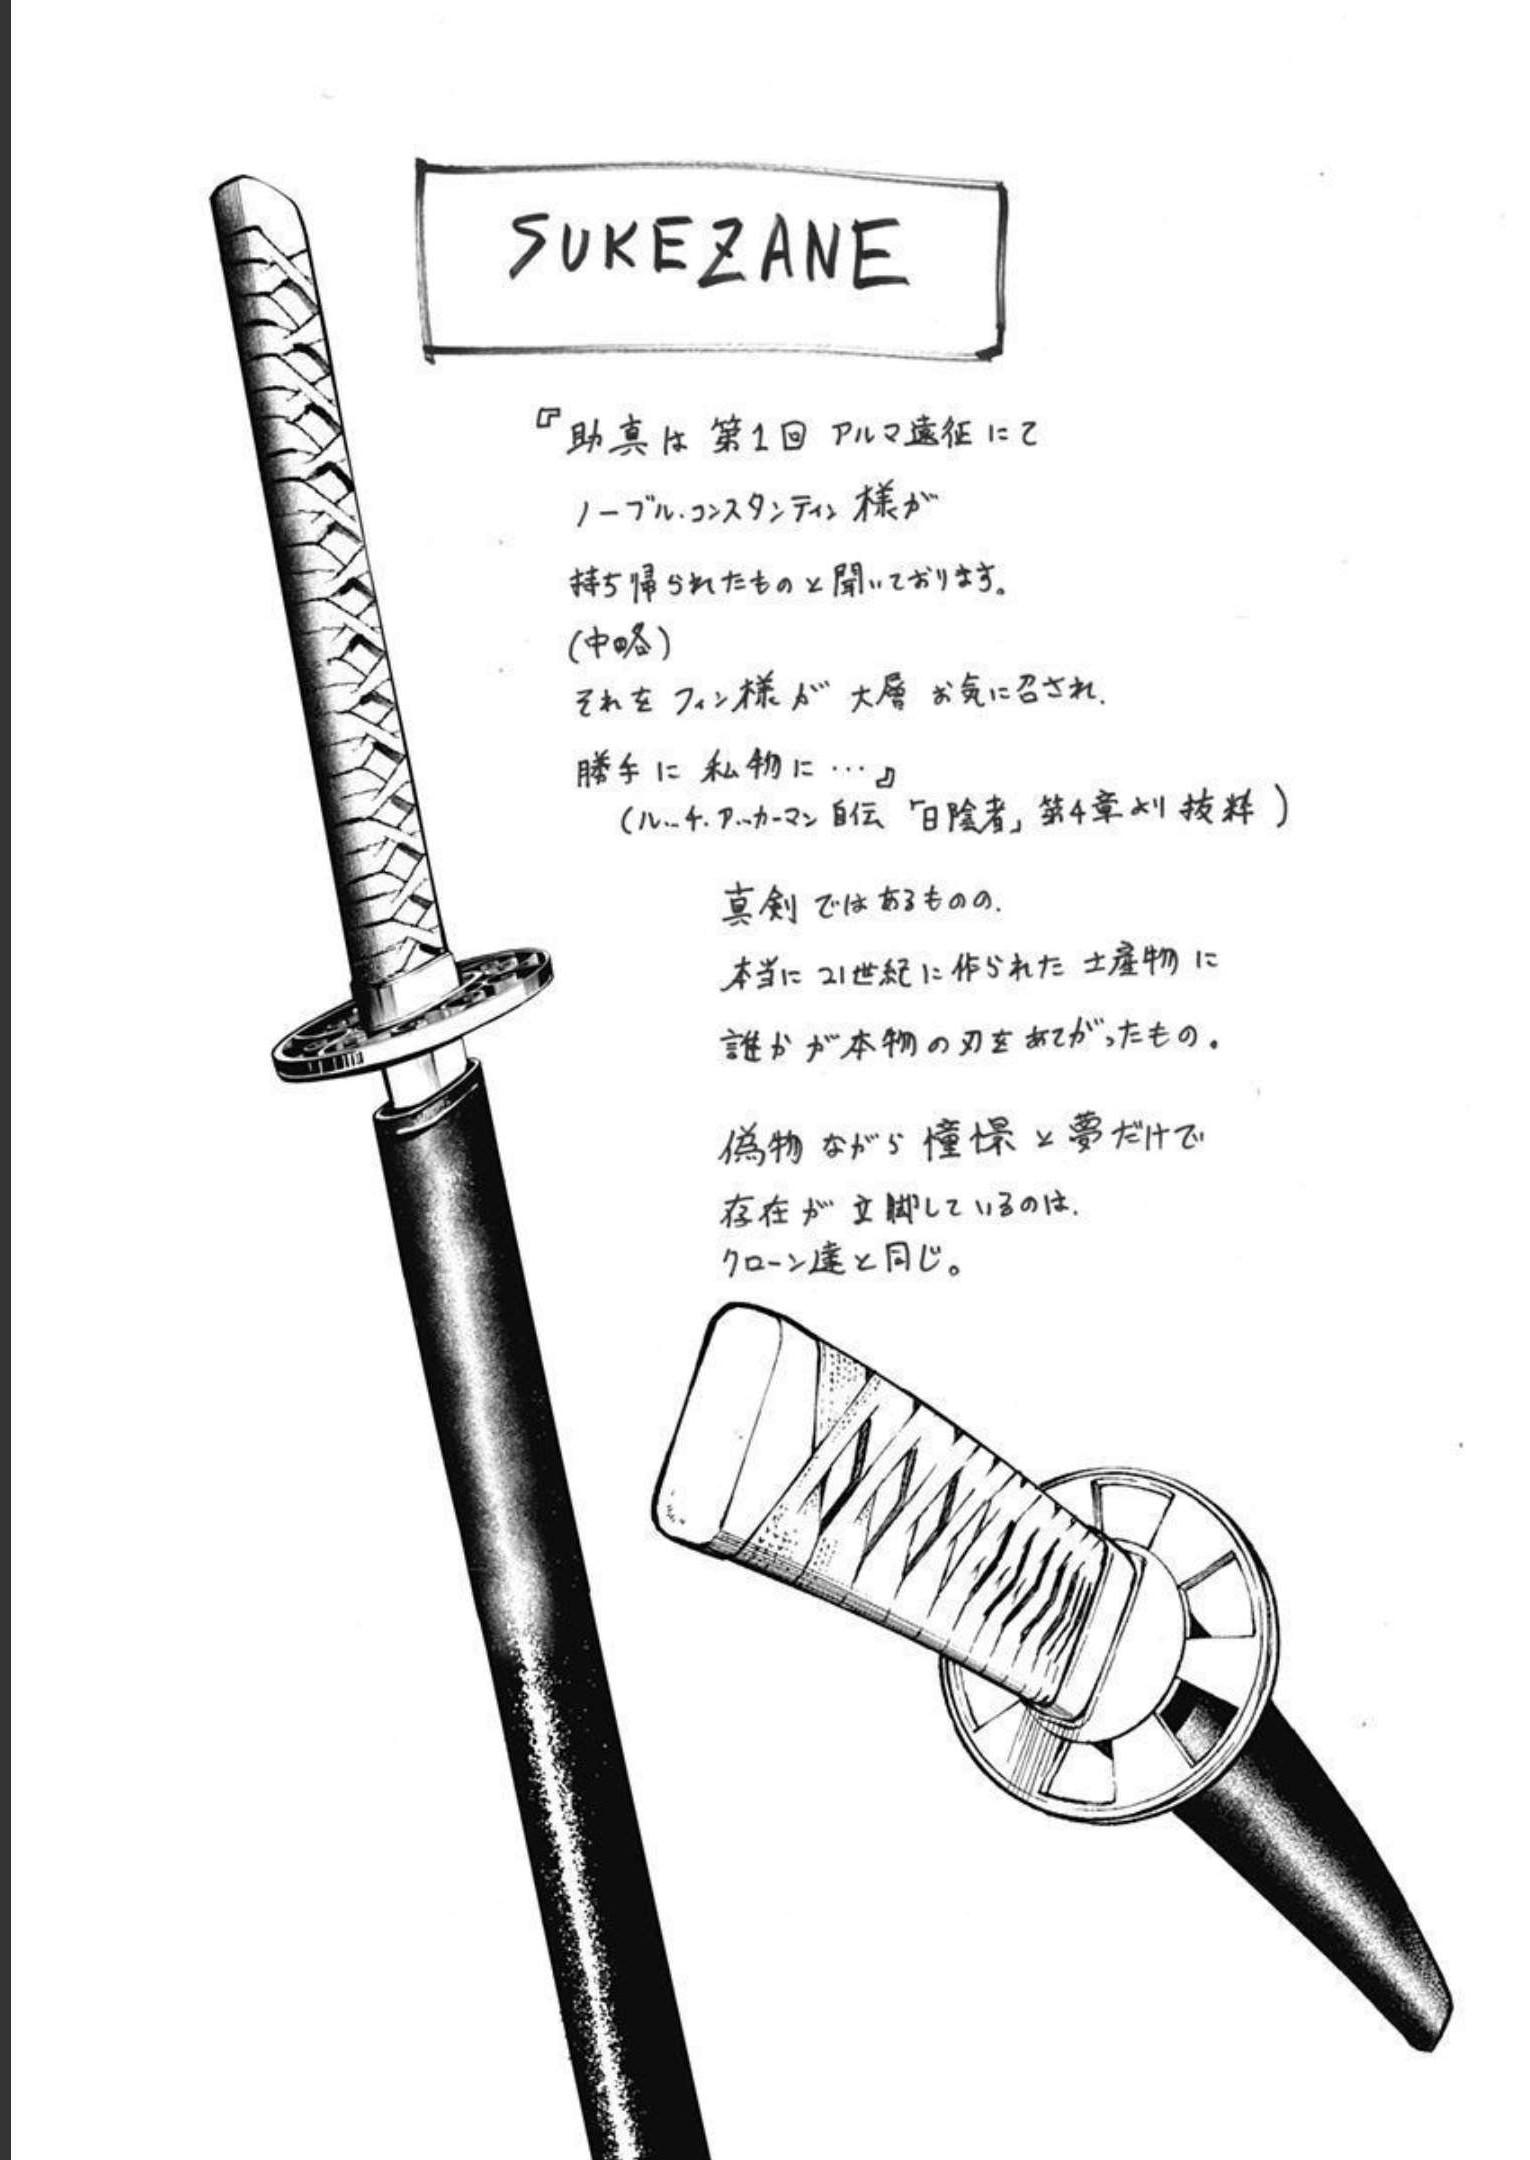 SUKEZANE
『助真は 第1回 アルマ遠征にて
ノーブル・コンスタンティン 様が
持ち帰られたものと聞いております。
(中略)
それを フィン様が 大層 お気に召され、
勝手に 私物に…』
(ルッチ・アッカーマン 自伝 「日陰者」 第4章より 抜粋)
真剣ではあるものの、
本当に 21世紀に作られた 土産物に
誰かが本物の刃をあてがったもの。
偽物ながら 憧憬と夢だけで
存在が 立脚しているのは、
クローン達と同じ。